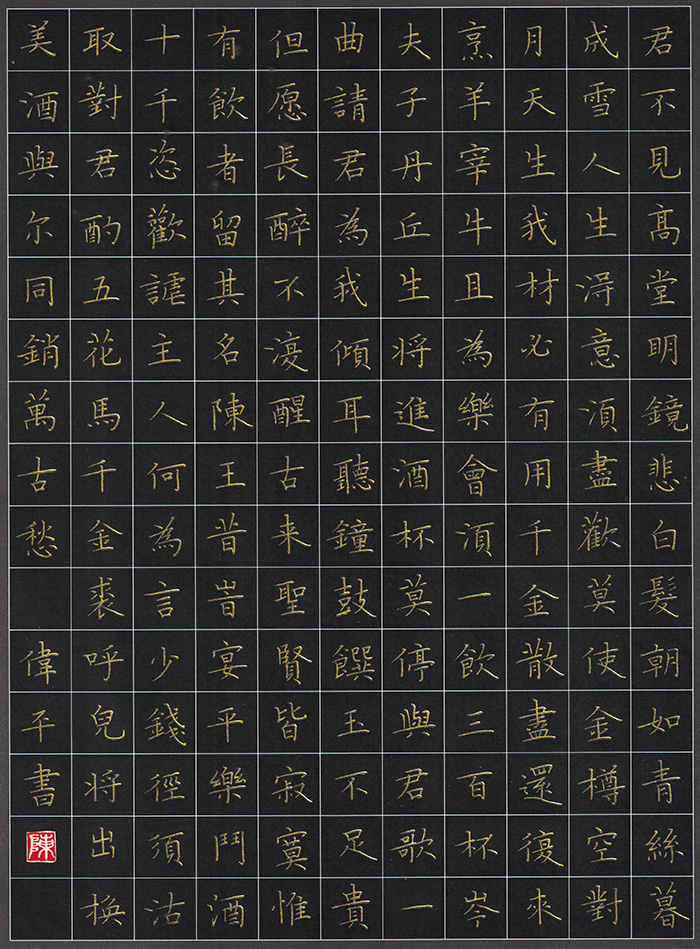 君不見髙堂明鏡悲白髮朝如青絲暮
成雪人生淂意湏盡歡莫使金樽空對
月天生我材必有用千金散盡還復來
烹羊宰牛且為樂會湏一飲三百杯岑
夫子丹丘生将進酒杯莫停與君歌一
曲請君為我傾耳聽鐘鼓饌玉不足貴
但愿長醉不復醒古来聖賢皆寂寞惟
有飲者留其名陳王昔旹宴平樂鬥酒
十千恣歡謔主人何為言少錢徑須沽
取對君酌五花馬千金裘呼兒将出換
美酒與尔同銷萬古愁 偉平書
陳